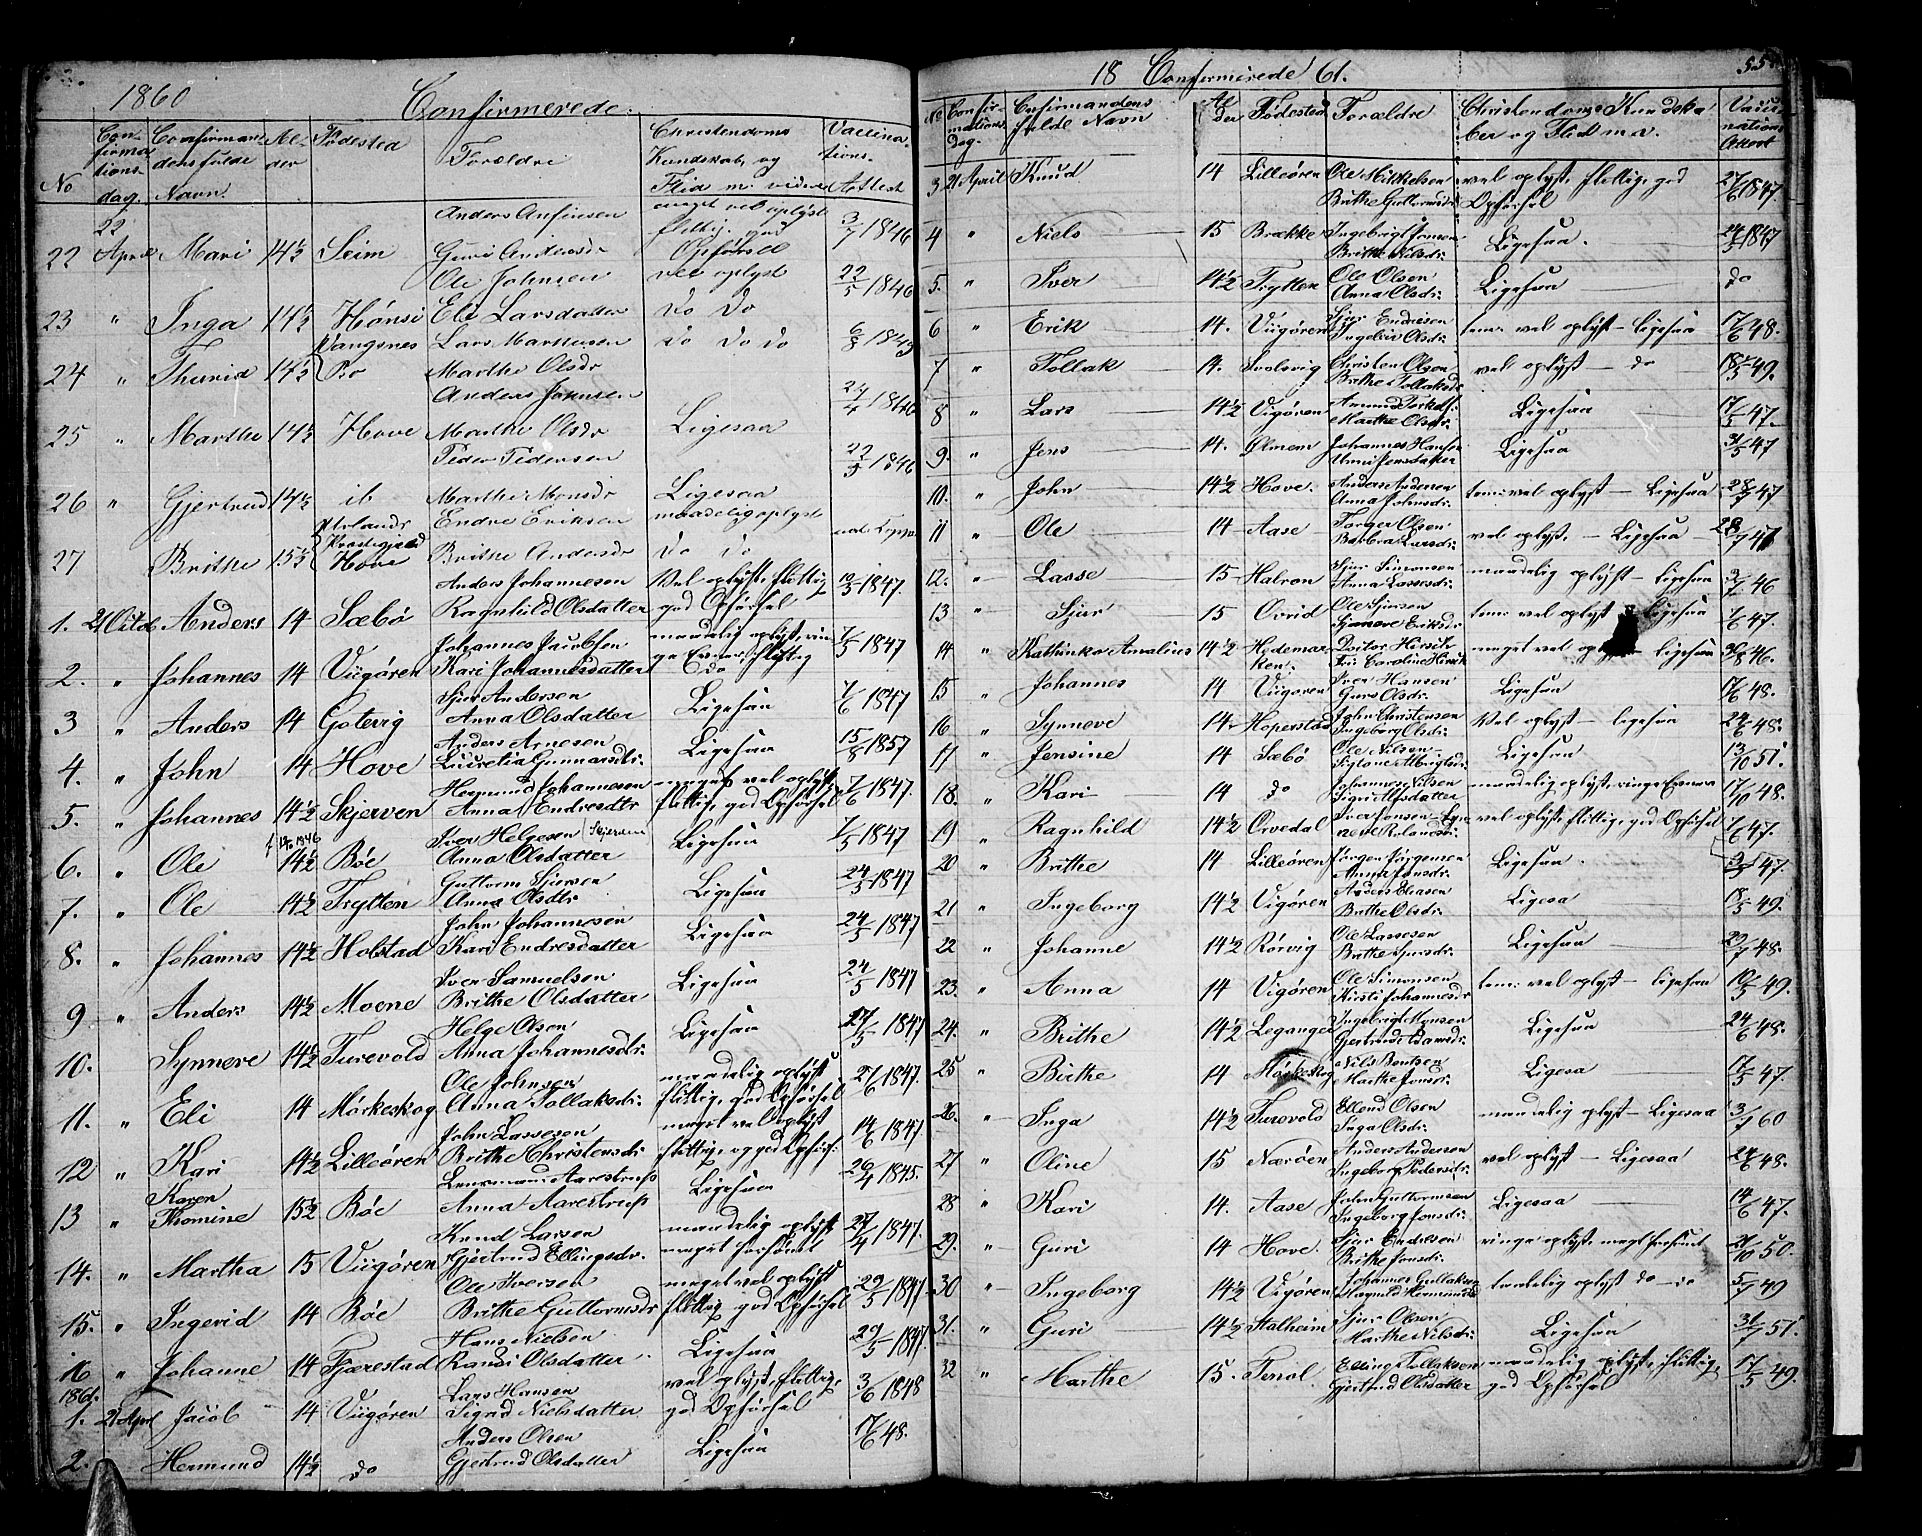 1860
Confirmerede.
No Confirmations-dag. Confirmandens fulde Navn Alder Fødested Forældre Christendoms Kundskab, og Flid m. videre Vaccinations-Attest
22 22 April Mari 14½ Seim Anders Anfinsen Guri Andersdr meget vel oplyst flittig, god Opførsel 3/7 1846
23 " Inga 14½ Hønsi Ole Johnsen Eli Larsdatter vel oplyst do do 22/5 1846
24 " Thurid 14½ Vangsnes Lars Markusen Marthe Olsdr do do do 6/8 1845
25 " Marthe 14½ Hove Anders Johnsen Marthe Olsdr Ligesaa 24/4 1846
26 " Gjertrud 14½ ib Peder Pedersen Marthe Monsdr Ligesaa 22/5 1846
27 Brithe 15½ Urlands Præstegjæld Hove Endre Eriksen Brithe Andersdr maadelig oplyst do do
1. 21 Octob Anders 14 Sæbø Anders Johannesen Ragnhild Olsdatter Vel oplyst, flittig, god Opførsel 19/5 1847.
2. " Johannes 14 Viigøren Johannes Jacobsen Kari Johannesdatter maadelig oplyst, ringe Evner, flittig do 7/5 1847
3 " Anders 14 Gotevig Sjur Andersen Anna Olsdatter Ligesaa 7/6 1847
4. " John 14 Hove Anders Arnesen Lucretia Gunnarsdr. Ligesaa 15/8 1857
5. " Johannes 14½ Skjerven Hermund Johannesen Anna Endresdtr meget vel oplyst flittig, god Opførsel 7/6 1847.
6. " Ole 14½ Bøe Iver Helgesen Anna Olsdatter Ligesaa 7/5 1847
7. " Ole 14½ Trytten Guttorm Sjursen Anna Olsdtr Ligesaa 24/5 1847
8. " Johannes 14½ Holstad John Johannesen Kari Endresdatter Ligesaa 24/5 1847
9 " Anders 14½ Moene Iver Samuelsen Brithe Olsdatter Ligesaa 24/5 1847
10. Synneve 14½ Turevold Helge Olsen Anna Johannesdtr. Ligesaa 27/5 1847
11. " Eli 14 Mørkeskog Ole Johnsen Anna Tollaksdr. maadelig oplyst flittig, god Opførsel 27/6 1847.
12 " Kari 14½ Lilleøren John Lassesen Brithe Christensdr. meget vel oplyst flittig, og god Opførs. 14/6 1847.
13 " Karen Thomine 15½ Bøe Lensmand Aarestrup Anna Aarestrup Ligesaa 26/4 1845.
14. " Martha 15 Viigøren Knud Larsen Gjertrud Ellingsdr. maadelig oplyst, meget forsømt 27/4 1847.
15. " Ingerid 14 Bøe Ole Iversen Brithe Guttormsdr meget vel oplyst flittig, god Opførsel 29/5 1847
16 " Johanne 14 Fjærestad Hans Nielsen Randi Olsdatter Ligesaa 29/5 1847.
1861.
1. 21 April Jacob 14 Viigøren Lars Hansen Sigrid Nielsdatter vel oplyst, flittig, god Opførsel 3/6 1848
2. Hermund 14½ do Anders Olsen Gjertrud Olsdatter Ligesaa 17/6 48.
18 Confirmerede 61. 55
No Confirmations Dag. Confirmandens fulde Navn Alder Fødested Forældre Christendoms Kundskaber og Flid m.v. Vaccinations Attest
3 21 April Knud 14 Lilleøren Ole Mikkelsen Brithe Guttormsdr. vel oplyst, flittig, god Opførsel 27/6 1847
4 " Niels 15 Brække Ingebrigt Jonsen Brithe Nilsdr. Ligesaa. 24/5 1847
5. " Iver 14½ Trytten Ole Olsen Anna Olsdr. Ligesaa do
6 " Erik 14. Viigøren Sjur Endresen Ingebor Olsdr. tem: vel oplyst - ligesaa 17/6 48.
7 " Tollak 14. Solsvig Christen Olsen Brithe Tollaksdr vel oplyst - do 18/5 49.
8 " Lars 14½ Vigøren Marthe Olsdr. Ligesaa 17/5 47.
9. " Jens 14. Ølmem Johannes Hansen Unni Jensdatter Ligesaa 31/5 47
10. " John 14½ Hove. Anders Andersen Anna Johnsdr. tem: vel oplyst - Ligesaa 28/7 47
11 " Ole 14 Aase Torger Olsen Barbra Larsdr. vel oplyst, - Ligesaa - 28/7 47
12. " Lasse 15 Halron Sjur Simonsen Anna Lassesdr. maadelig oplyst - ligesaa 3/7 46
13 " Sjur 15 Ovrid Ole Sjursen Synneve Eriksdr tem: vel oplyst ligesaa 7/6 47.
14 " Kathinka Amalius 14½ Hedemarken. Doctor Hirsch Fru Caroline Hirsch meget vel op ligesaa 30/8 46.
15 " Johannes 14 Viigøren Iver Hansen Guro Olsdr. Ligesaa 17/6 48.
16 " Synneve 14. Hoperstad John Christensen Ingeborg Olsdr. Vel oplyst - ligesaa 24/6 48.
17 " Jensine 14 Sæbø Ole Nilsen Ligesaa 13/10 51.
18. " Kari 14 do Johannes Nilsen maadelig oplyst, ringe Evner 17/10 48.
19 " Ragnhild 14½ Ovredal Iver Jonsen - vel oplyst, flittig, god Opførsel 7/6 47.
20 " Brithe 14 Lilleøren Jørgen Jørgensen Anna Jonsdr. Ligesaa. 47.
21 " Ingeborg 14½ Vigøren Anders Eliasen Brithe Olsdr. Ligesaa 18/5 49.
22 " Johanne 14½ Rørvig Ole Lassesen Brithe Sjursdr. Ligesaa 29/7 48.
23. " Anna 14 Vigøren Ole Simonsen Kirsti Johannesdr tem: vel oplyst - ligesaa 19/5 49.
24. " Brithe 14½ Leganger Ingebrigt Monsen Gjertrud Ligesaa 24/6 48.
25 " Birthe 14 Mørkeskog Nils Bentsen Marthe Jonsdr. Ligesaa 17/5 47.
26. " Inga 14½ Turevold Ellend Olsen Inga Olsdr. maadelig oplyst - Ligesaa 3/7 60
27 " Oline 15 Nærøen Anders Andersen Ingeborg Pedersdr. vel oplyst - Ligesaa 24/6 48.
28 " Kari 14. Aase John Guttormsen Ingeborg Jonsdr. Ligesaa 14/6 47.
29. " Guri 14 Hove. Sjur Endresen Brithe Jonsdr. ringe oplyst, meget forsømt 21/10 50.
30 " Ingeborg 14½ Vigøren Johannes Gullaksen Ragnild Hermundsd taadelig oplyst do - do 5/7 49
31. " Guri 14½ Stalheim Sjur Olsen Marthe Nilsdr. Ligesaa 31/7 51.
32 " Marthe 15. Elling Tollaksen Gjertrud Olsdatter maadelig oplyst, flittig, god Opførsel 17/5 49.